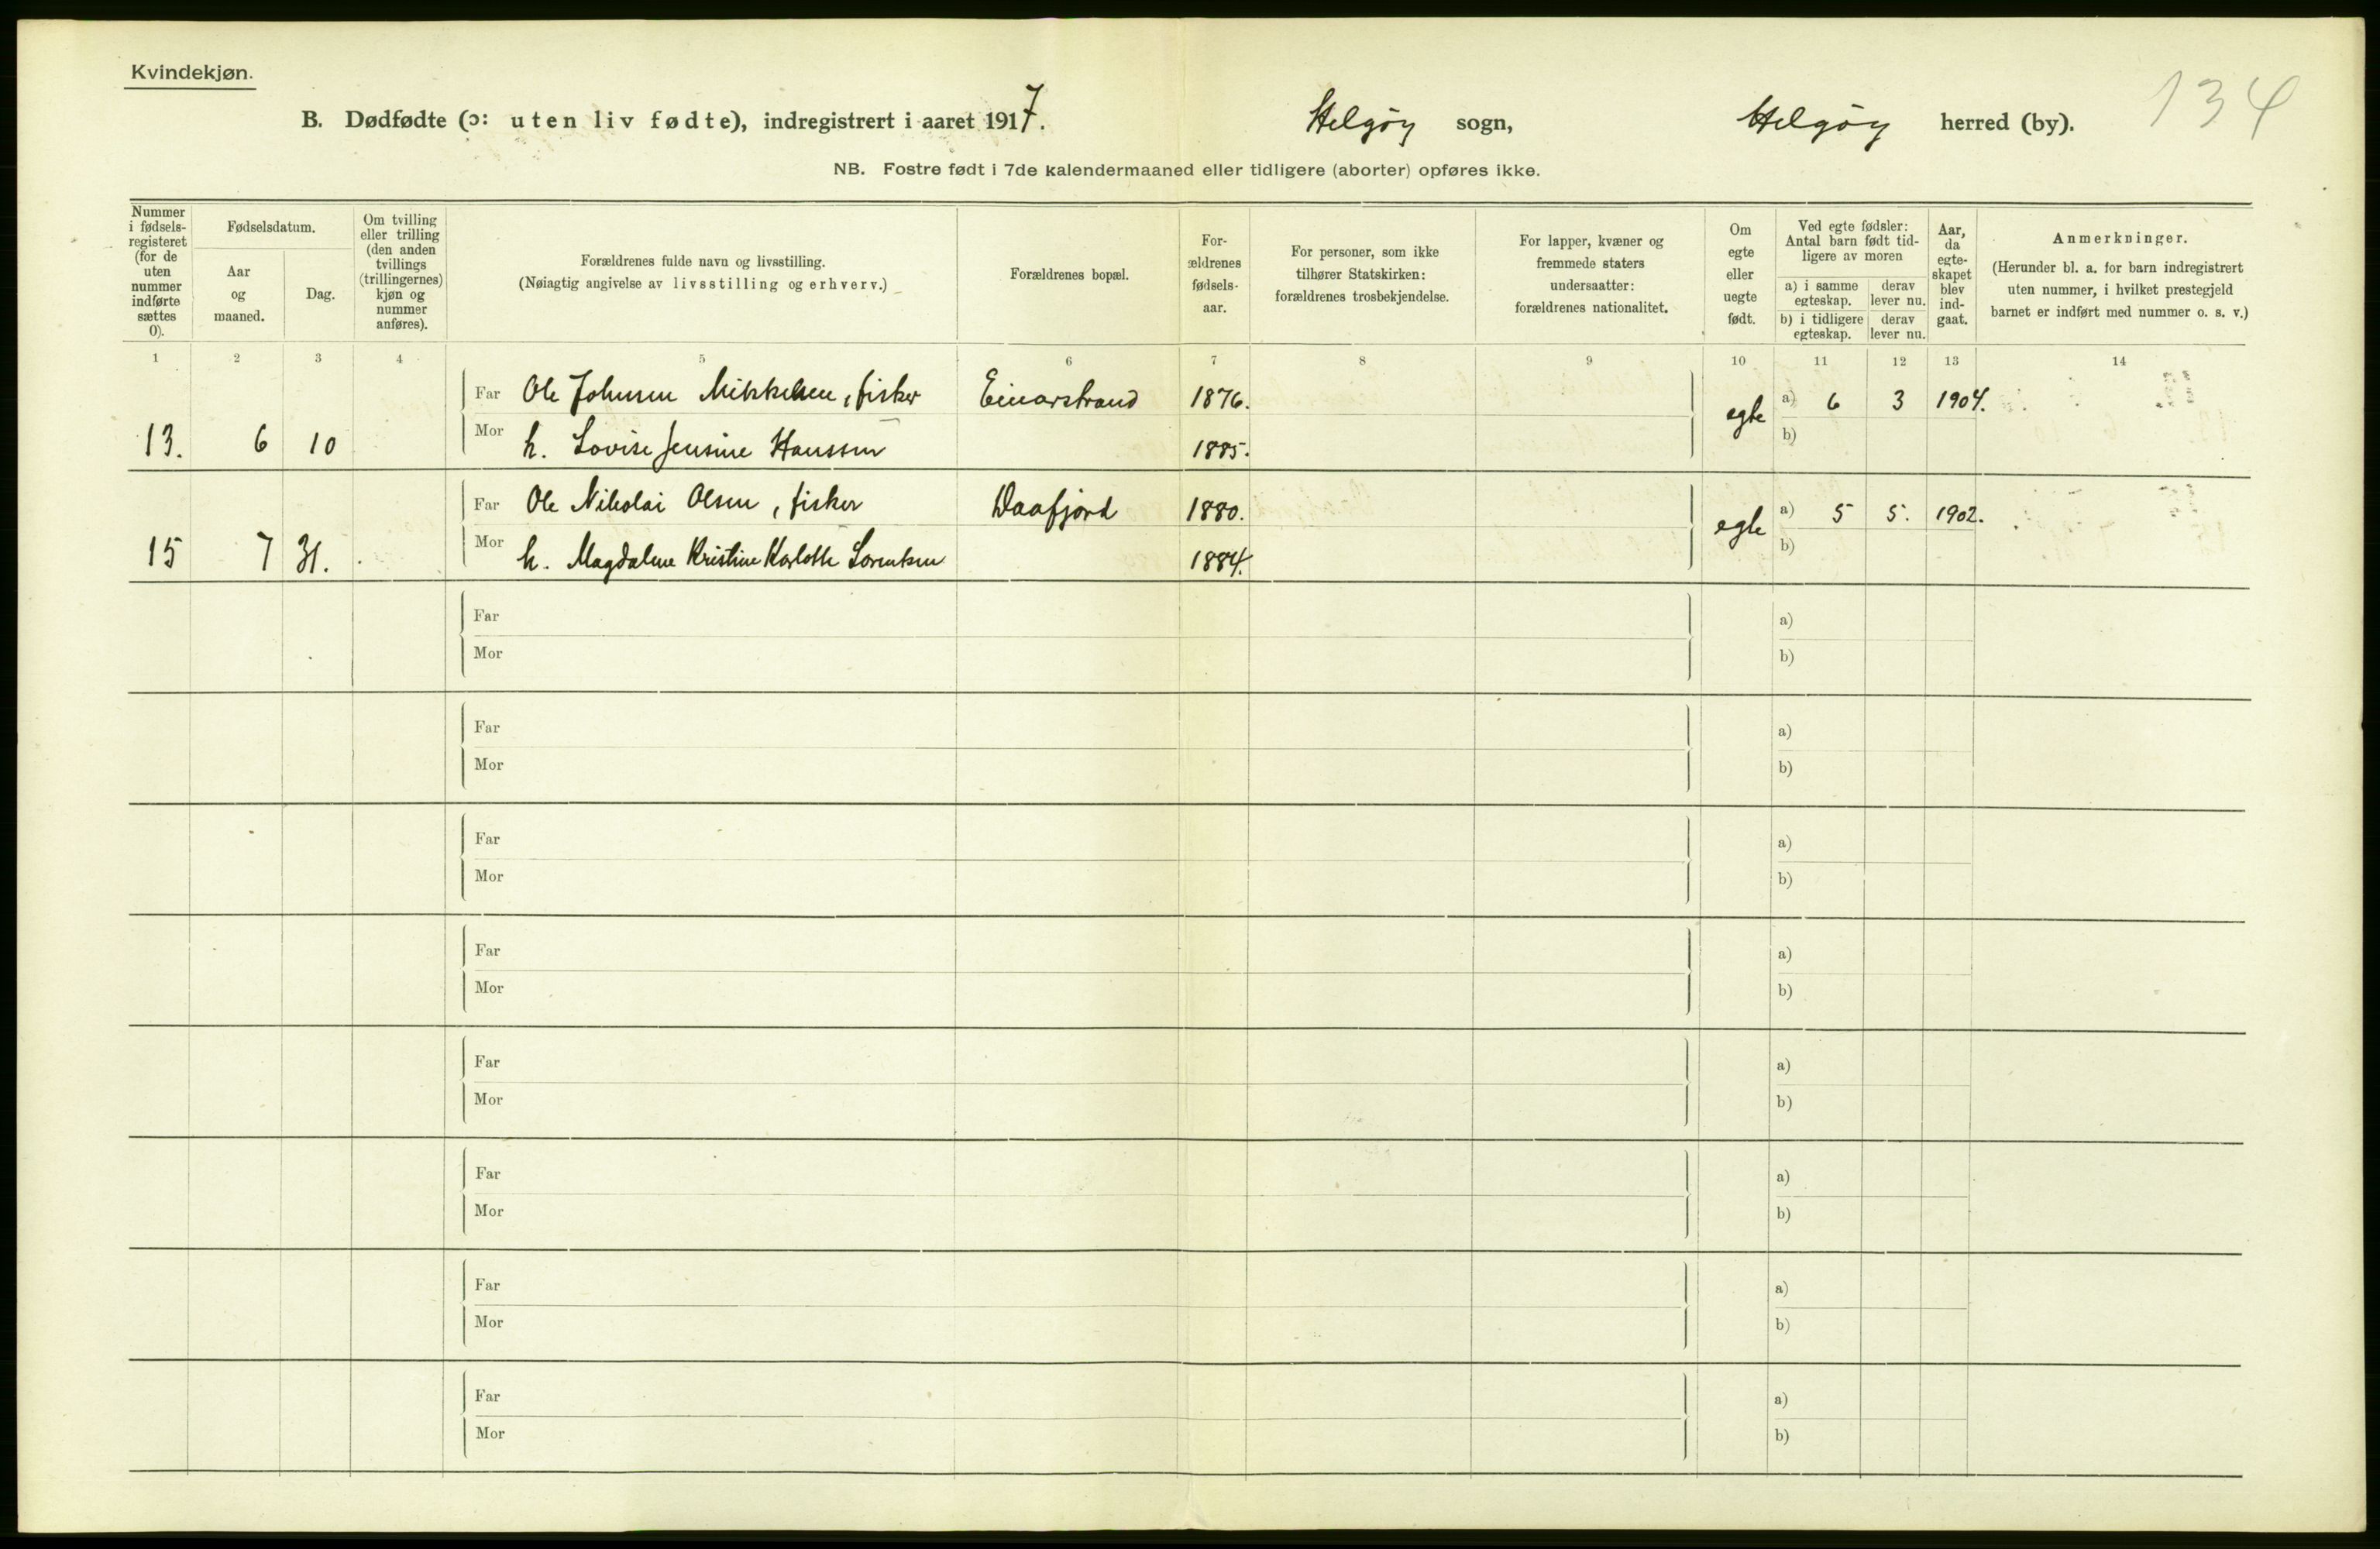 Kvindekjøn.
134
B. Dødfødte (ɔ: uten liv fødte), indregistrert i aaret 1917. Helgøy sogn, Helgøy herred (by).
NB. Fostre født i 7de kalendermaaned eller tidligere (aborter) opføres ikke.
Nummer
i fødsels-
registeret
(for de
uten
nummer
indførte
sættes
0).
Fødselsdatum.
Aar
og
maaned.
Dag.
Om tvilling
eller trilling
(den anden
tvillings
(trillingernes)
kjøn og
nummer
anføres).
Forældrenes fulde navn og livsstilling.
(Nøiagtig angivelse av livsstilling og erhverv.)
Forældrenes bopæl.
For-
ældrenes
fødsels-
aar.
For personer, som ikke
tilhører Statskirken:
forældrenes trosbekjendelse.
For lapper, kvæner og
fremmede staters
undersaatter:
forældrenes nationalitet.
Om
egte
eller
uegte
født.
Ved egte fødsler:
Antal barn født tid-
ligere av moren
a) i samme
egteskap.
derav
lever nu.
b) i tidligere
egteskap.
derav
lever nu.
Aar,
da
egte-
skapet
blev
ind-
gaat.
Anmerkninger.
(Herunder bl. a. for barn indregistrert
uten nummer, i hvilket prestegjeld
barnet er indført med nummer o. s. v.)
1 2 3 4 5 6 7 8 9 10 11 12 13 14
Far Ole Johnsen Mikkelsen, fisker Einarstrand 1876. egte a) 6 3 1904.
13. 6 10 Mor h. Lovise Jensine Hanssen 1885. b)
Far Ole Nikolai Olsen, fisker Daafjord 1880. egte a) 5 5. 1902.
15 7 31. Mor h. Magdalene Kristine Karlotte Lorentsen 1884. b)
Far a)
Mor b)
Far a)
Mor b)
Far a)
Mor b)
Far a)
Mor b)
Far a)
Mor b)
Far a)
Mor b)
Far a)
Mor b)
Far a)
Mor b)